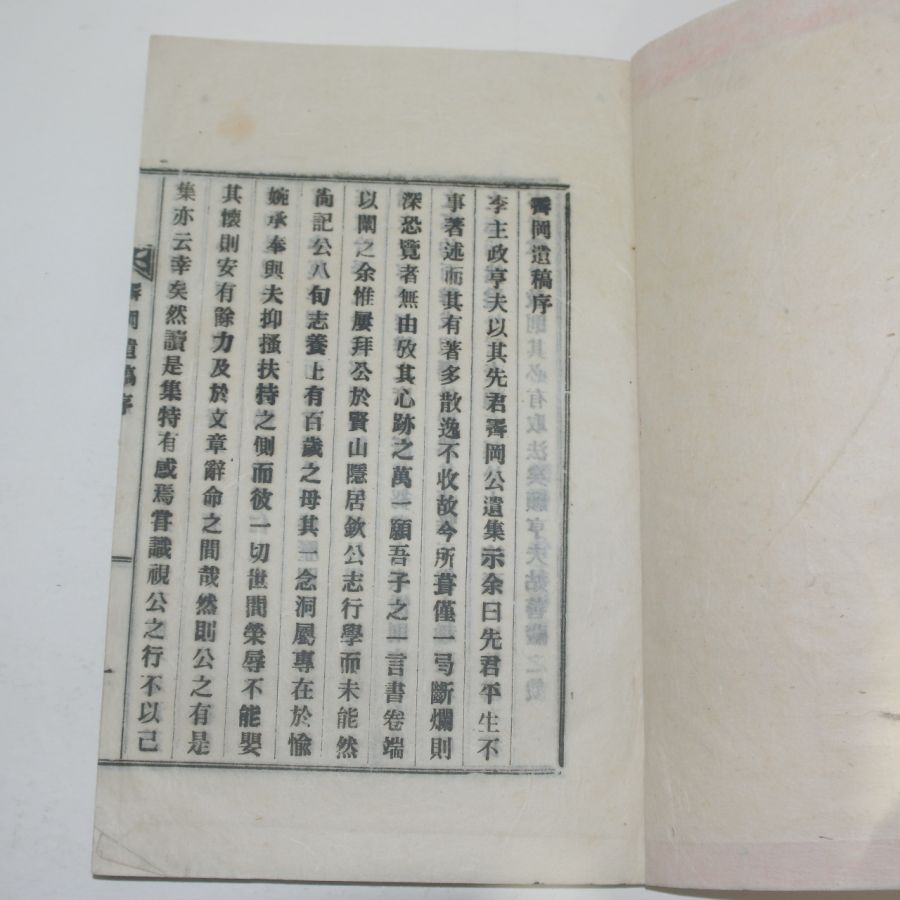 霽岡遺稿序
李主政亨夫以其先君霽岡公遺集示余曰先君平生不
事著述而其有著多散逸不收故今所葺僅一弓斷爛則
深恐覽者無由攷其心跡之萬一願吾子之一言書卷端
以闡之余惟屢拜公於賢山隱居欽公志行學而未能然
尙記公八旬志養上有百歲之母其一念洞屬專在於愉
婉承奉與夫抑搔扶持之側而彼一切世間榮辱不能嬰
其懷則安有餘力及於文章辭命之間哉然則公之有是
集亦云幸矣然讀是集特有感焉嘗識視公之行不以己
霽岡遺稿序
一